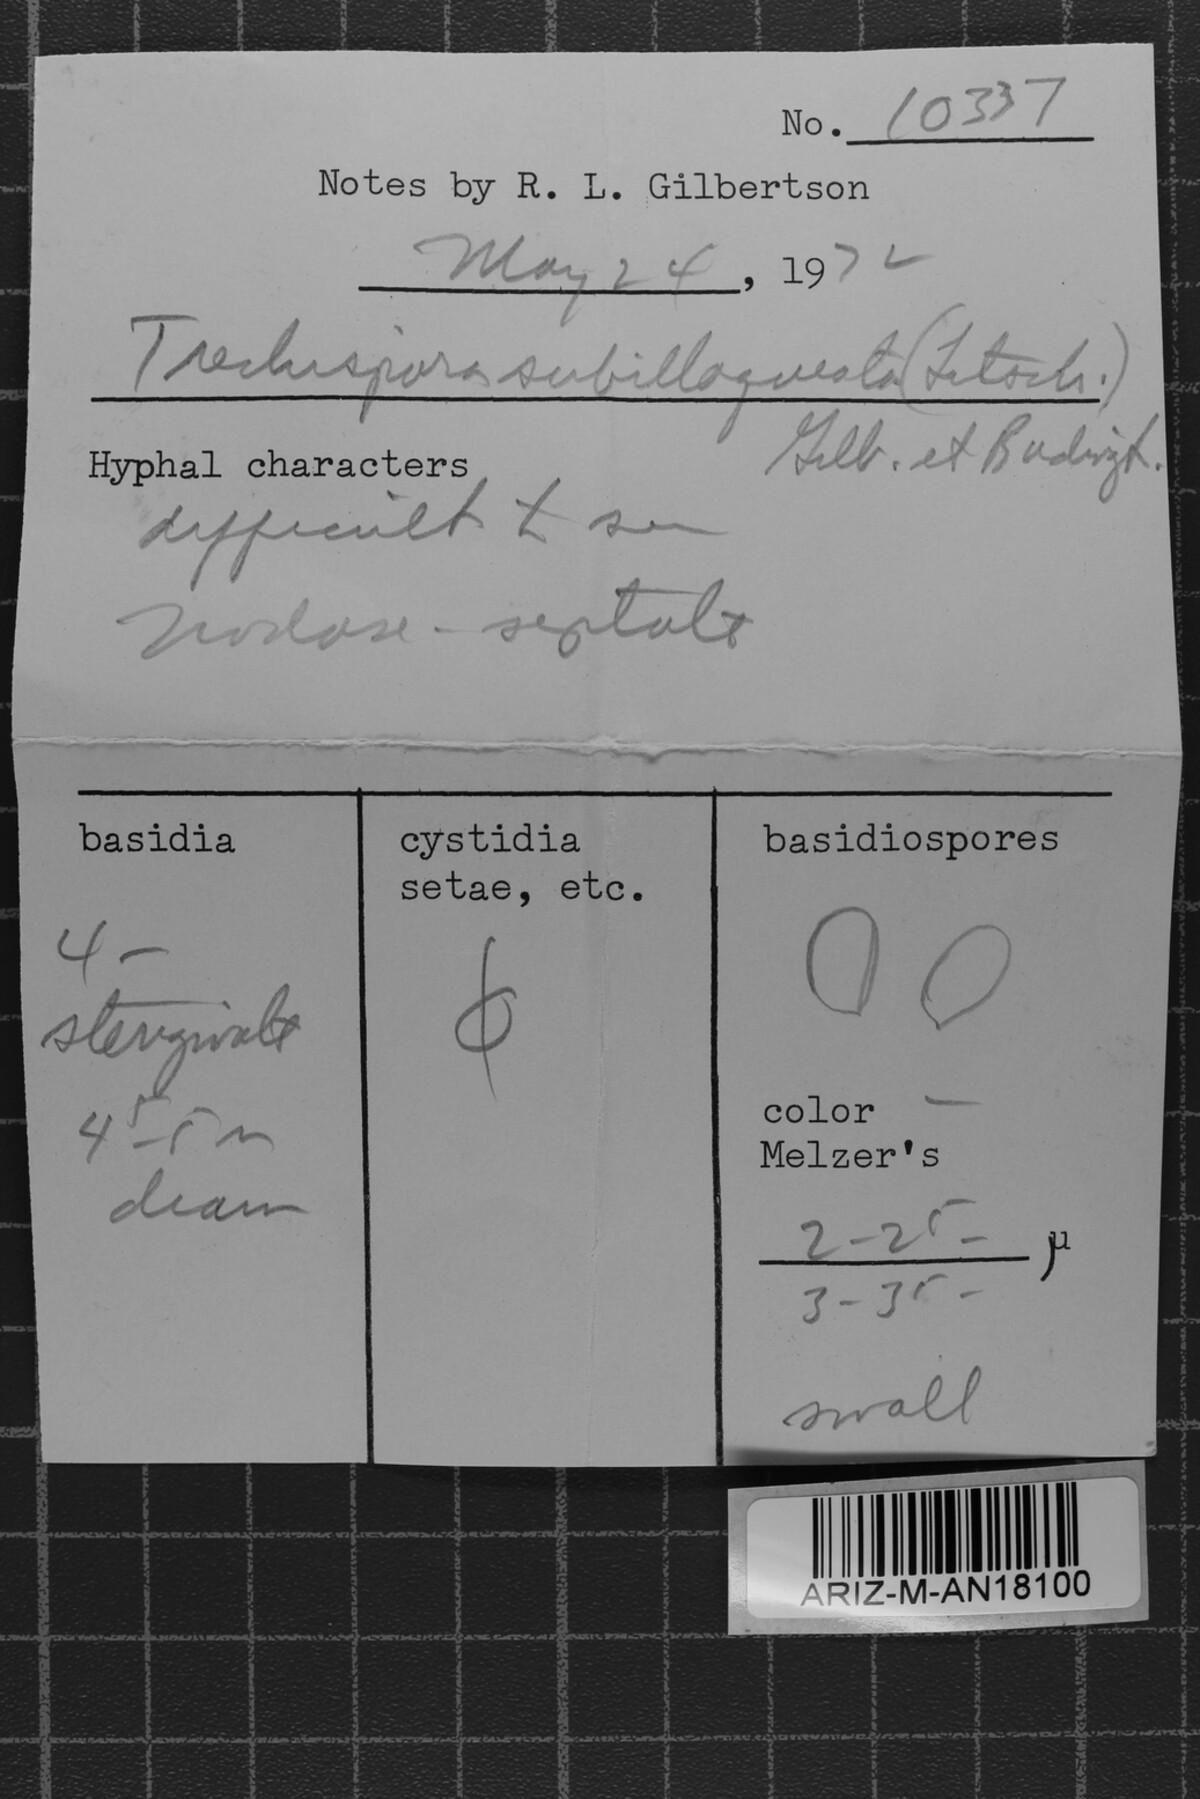 No. 10337
Notes by R. L. Gilbertson
May 24, 1972
Trechispora subillaqueata (Litsch.)
Gilb. et Budingt.
Hyphal characters
difficult to see
nodose-septate
basidia
4-
sterigmate
4⁵-5 m
diam
cystidia
setae, etc.
basidiospores
color —
Melzer's
2-2⁵ - µ
3-3⁵ -
small
ARIZ-M-AN18100